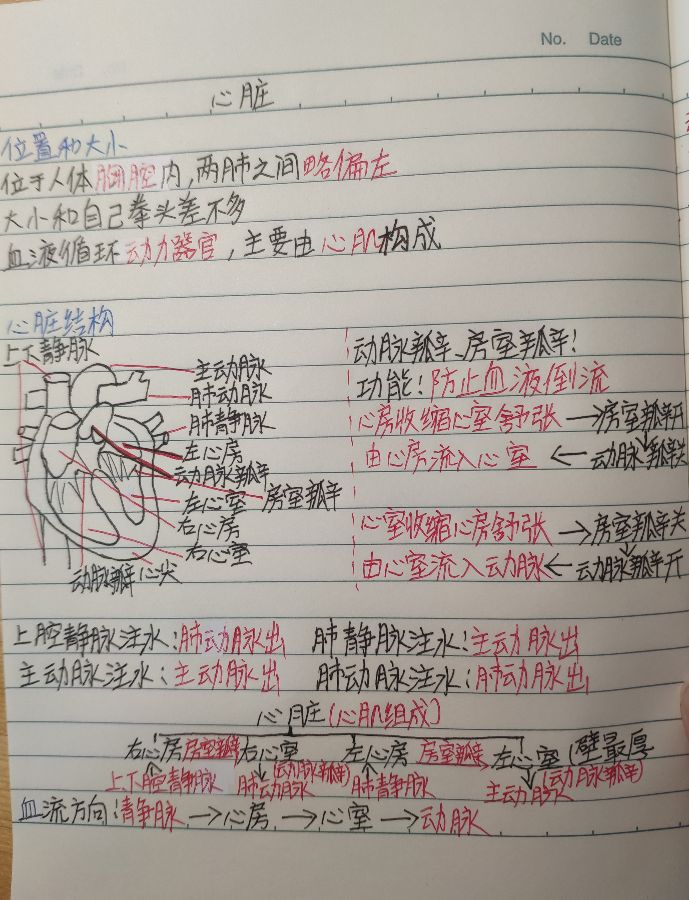 No. Date
心脏
位置和大小
位于人体胸腔内,两肺之间略偏左
大小和自己拳头差不多
血液循环动力器官,主要由心肌构成
心脏结构
上下静脉
主动脉
肺动脉
肺静脉
左心房
动脉瓣
左心室 房室瓣
右心房
右心室
动脉瓣 心尖
动脉瓣、房室瓣!
功能:防止血液倒流
心房收缩心室舒张→房室瓣开
由心房流入心室←动脉瓣关
心室收缩心房舒张→房室瓣关
由心室流入动脉←动脉瓣开
上腔静脉注水:肺动脉出 肺静脉注水:主动脉出
主动脉注水:主动脉出 肺动脉注水:肺动脉出
心脏(心肌组成)
右心房 房室瓣 右心室 左心房 房室瓣 左心室(壁最厚
上下腔静脉 肺动脉(动脉瓣) 肺静脉 主动脉(动脉瓣)
血流方向:静脉→心房→心室→动脉